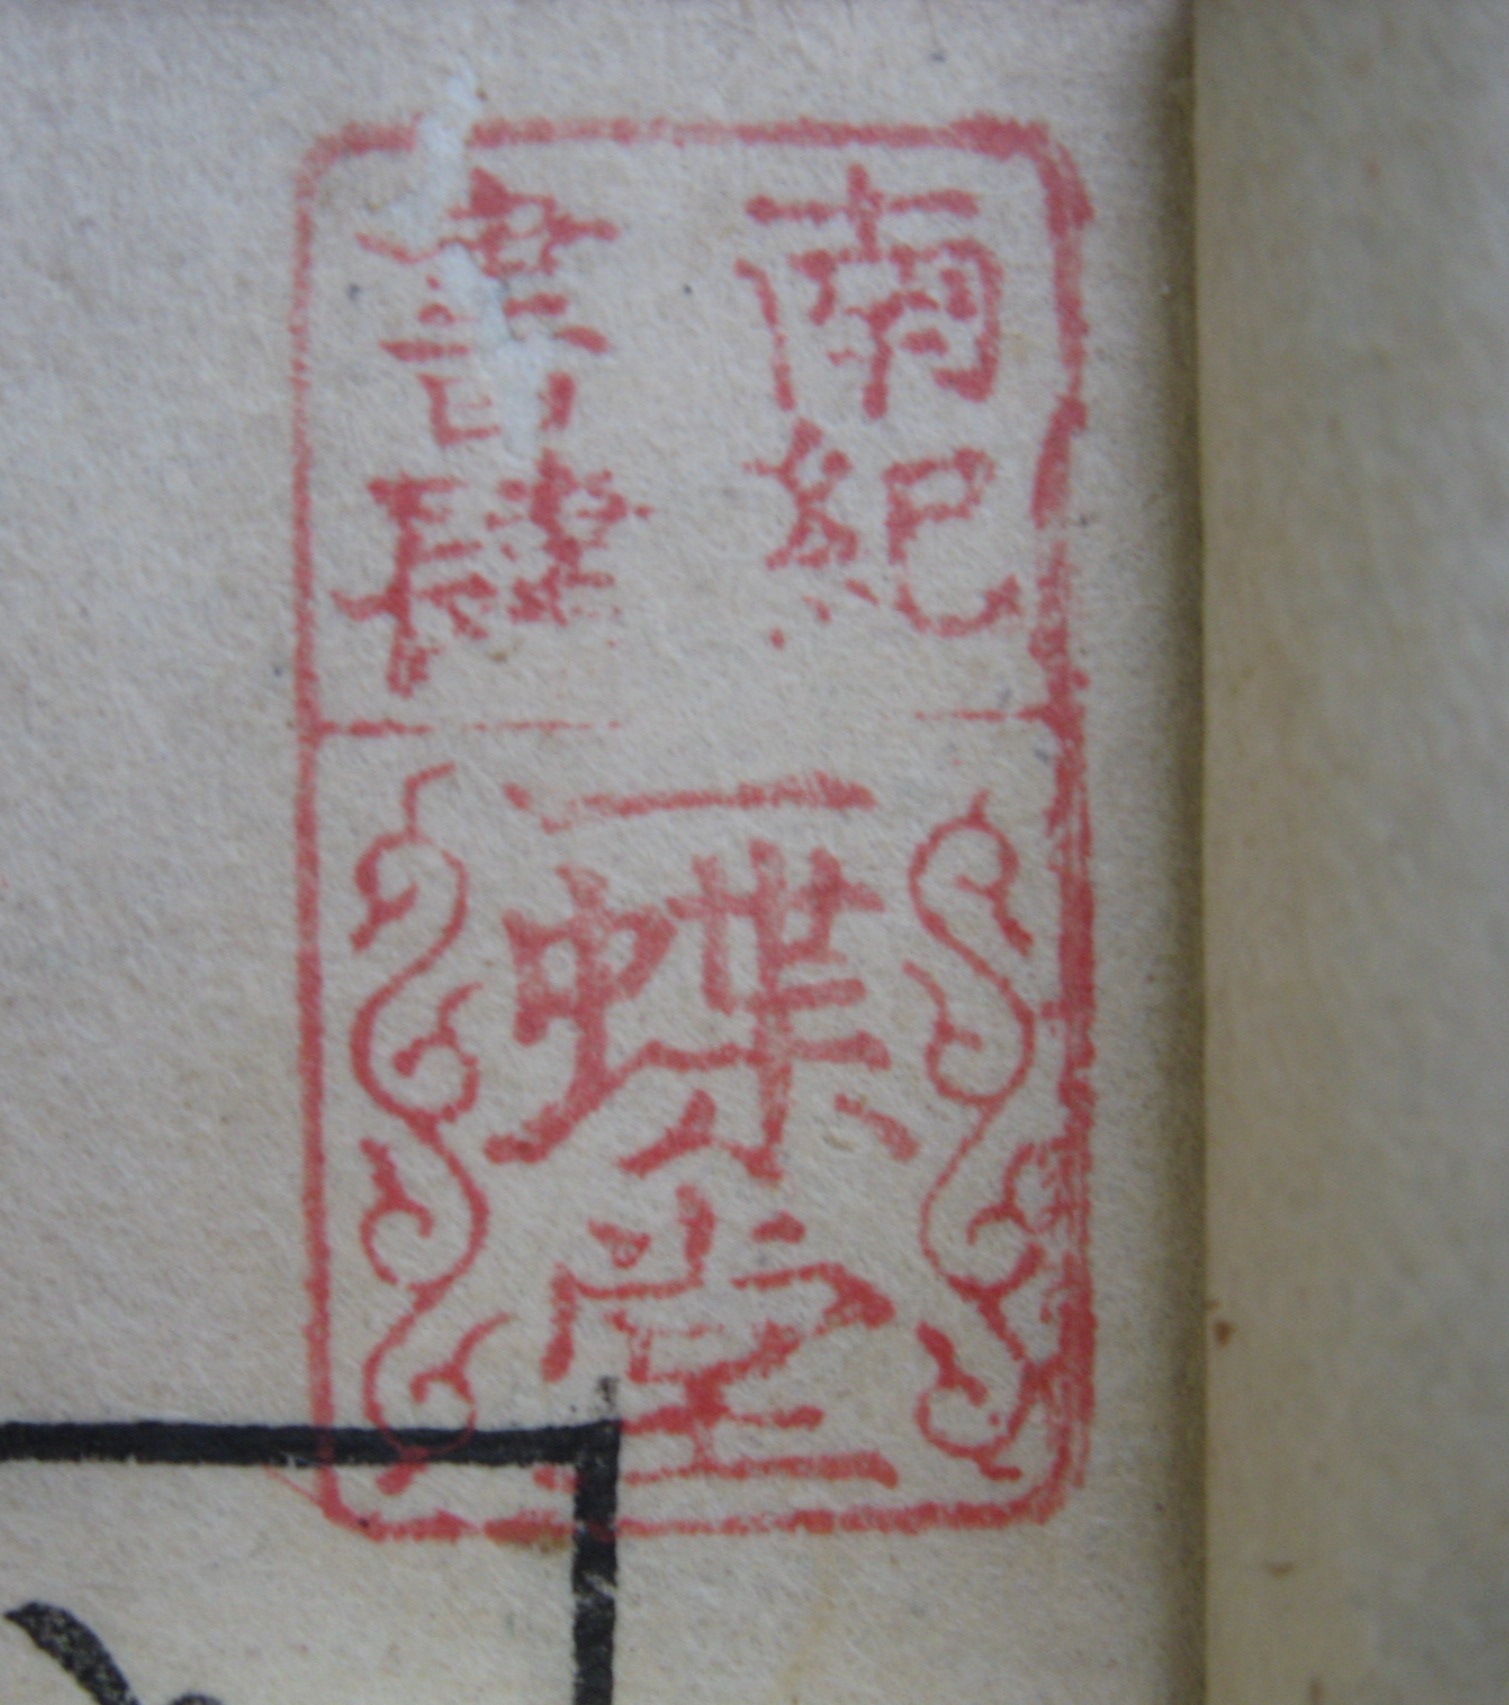 南紀
書肆
一蝶堂